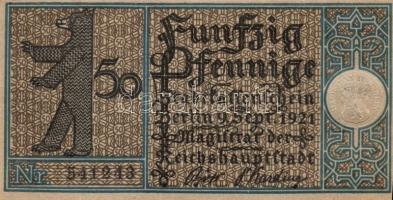 Funfzig
Pfennige
50
Stadtkassenschein
Berlin 9. Sept. 1921
Magistrat der
Reichshauptstadt
Nr. 541243